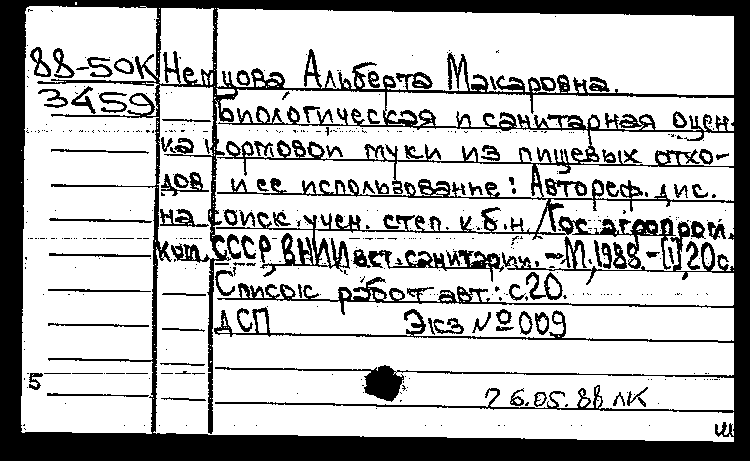 88-50К Немцова Альберта Макаровна.
3459 Биологическая и санитарная оцен-
ка кормовой муки из пищевых отхо-
дов и ее использование: Автореф. дис.
на соиск. учен. степ. к.б.н. /Гос. агропром.
ком. СССР, ВНИИ вет. санитарии. -М., 1988.-[1], 20 с.
Список работ авт.: с.20.
ДСП Экз №009
5
26.05.88 ЛК